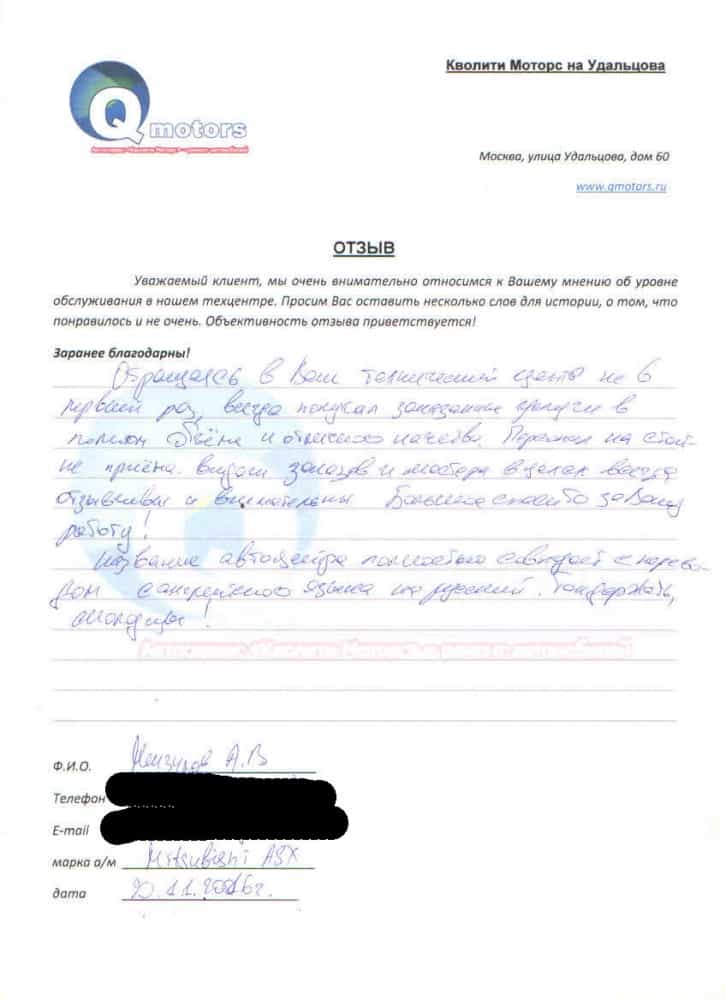 Кволити Моторс на Удальцова
Q motors
Москва, улица Удальцова, дом 60
www.qmotors.ru
ОТЗЫВ
Уважаемый клиент, мы очень внимательно относимся к Вашему мнению об уровне
обслуживания в нашем техцентре. Просим Вас оставить несколько слов для истории, о том, что
понравилось и не очень. Объективность отзыва приветствуется!
Заранее благодарны!
Обращаюсь в Ваш технический центр не в
первый раз, всегда получал заказанные услуги в
полном объёме и отличного качества. Персонал на стой-
ке приёма выдачи заказов и мастера в цехах всегда
отзывчивы и внимательны Большое спасибо за Вашу
работу!
Название автоцентра полностью совпадает с перево-
дом с английского языка на русский. Так держать,
молодцы!
Ф.И.О. А.В
Телефон
E-mail
марка а/м Mitsubishi ASX
дата 20.11.2016г.